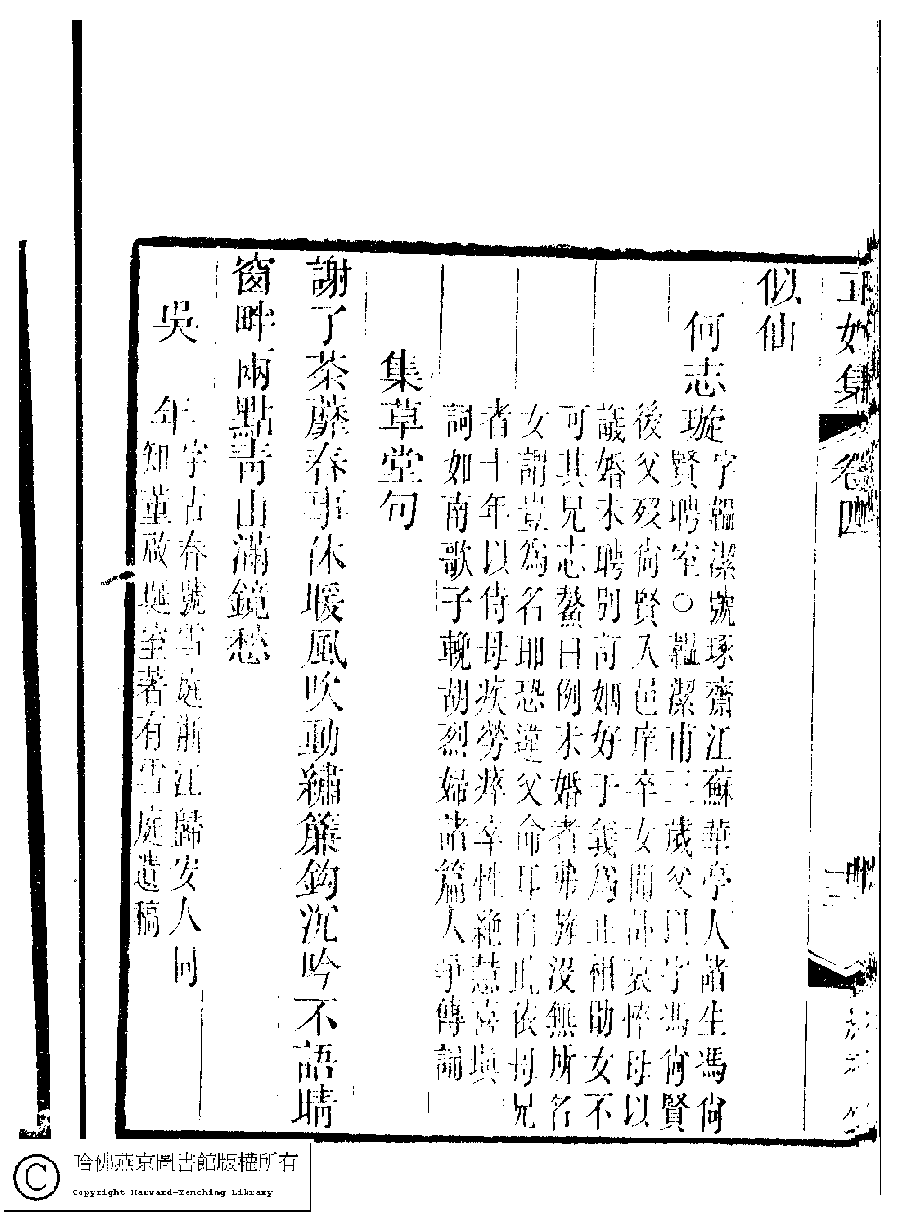 似仙
何志璇字韞潔號琢齋江蘇華亭人諸生馮尙
賢聘室○韞潔甫三歲父以字馮尙賢
後父歿尙賢入邑庠卒女聞訃哀悴母以
議婚未聘別訂姻好于義爲正相助女不
可其兄志鰲曰例未婚者弗旌沒無所名
女謂豈為名耶恐違父命耳自此依母兄
者十年以侍母疾勞瘁卒性絶慧喜填
詞如南歌子輓胡烈婦諸篇人爭傳誦
集草堂句
謝了荼蘼春事休暖風吹動繡簾鉤沉吟不語晴
窗畔兩點靑山滿鏡愁
吳年字古春號雪庭浙江歸安人同
知董啟埏室著有雪庭遺稿
玉如集 卷四
哈佛燕京圖書館版權所有
Copyright Harvard-Yenching Library